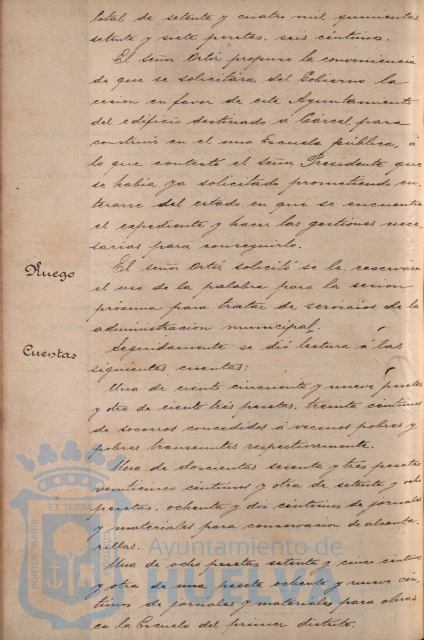 total de setenta y cuatro mil quinientas
setenta y siete pesetas, seis céntimos.
El señor Ortiz propuso la conveniencia
de que se solicitara del Gobierno la
cesion en favor de este Ayuntamiento
del edificio destinado á Cárcel para
construir en el una Escuela pública, á
lo que contestó el señor Presidente que
se habia ya solicitado prometiendo en-
terarse del estado en que se encuentra
el expediente y hacer las gestiones nece-
sarias para conseguirlo.
Ruego
El señor Ortiz solicitó se le reservara
el uso de la palabra para la sesion
próxima para tratar de servicios de la
administracion municipal.
Cuentas
Seguidamente se dió lectura á las
siguientes cuentas:
Una de ciento cincuenta y nueve pesetas
y otra de ciento tres pesetas, treinta céntimos
de socorros concedidos á vecinos pobres y
pobres transeuntes respectivamente.
Una de doscientas sesenta y tres pesetas
veinticinco céntimos y otra de setenta y ocho
pesetas, ochenta y dos céntimos de jornales
y materiales para conservacion de alcanta-
rillas.
Una de ocho pesetas setenta y cinco céntimos
y otra de una peseta ochenta y nueve cén-
timos de jornales y materiales para obras
en la Escuela del primer distrito.
PORTUS MARIS
ET TERRAE
Ayuntamiento de
HUELVA